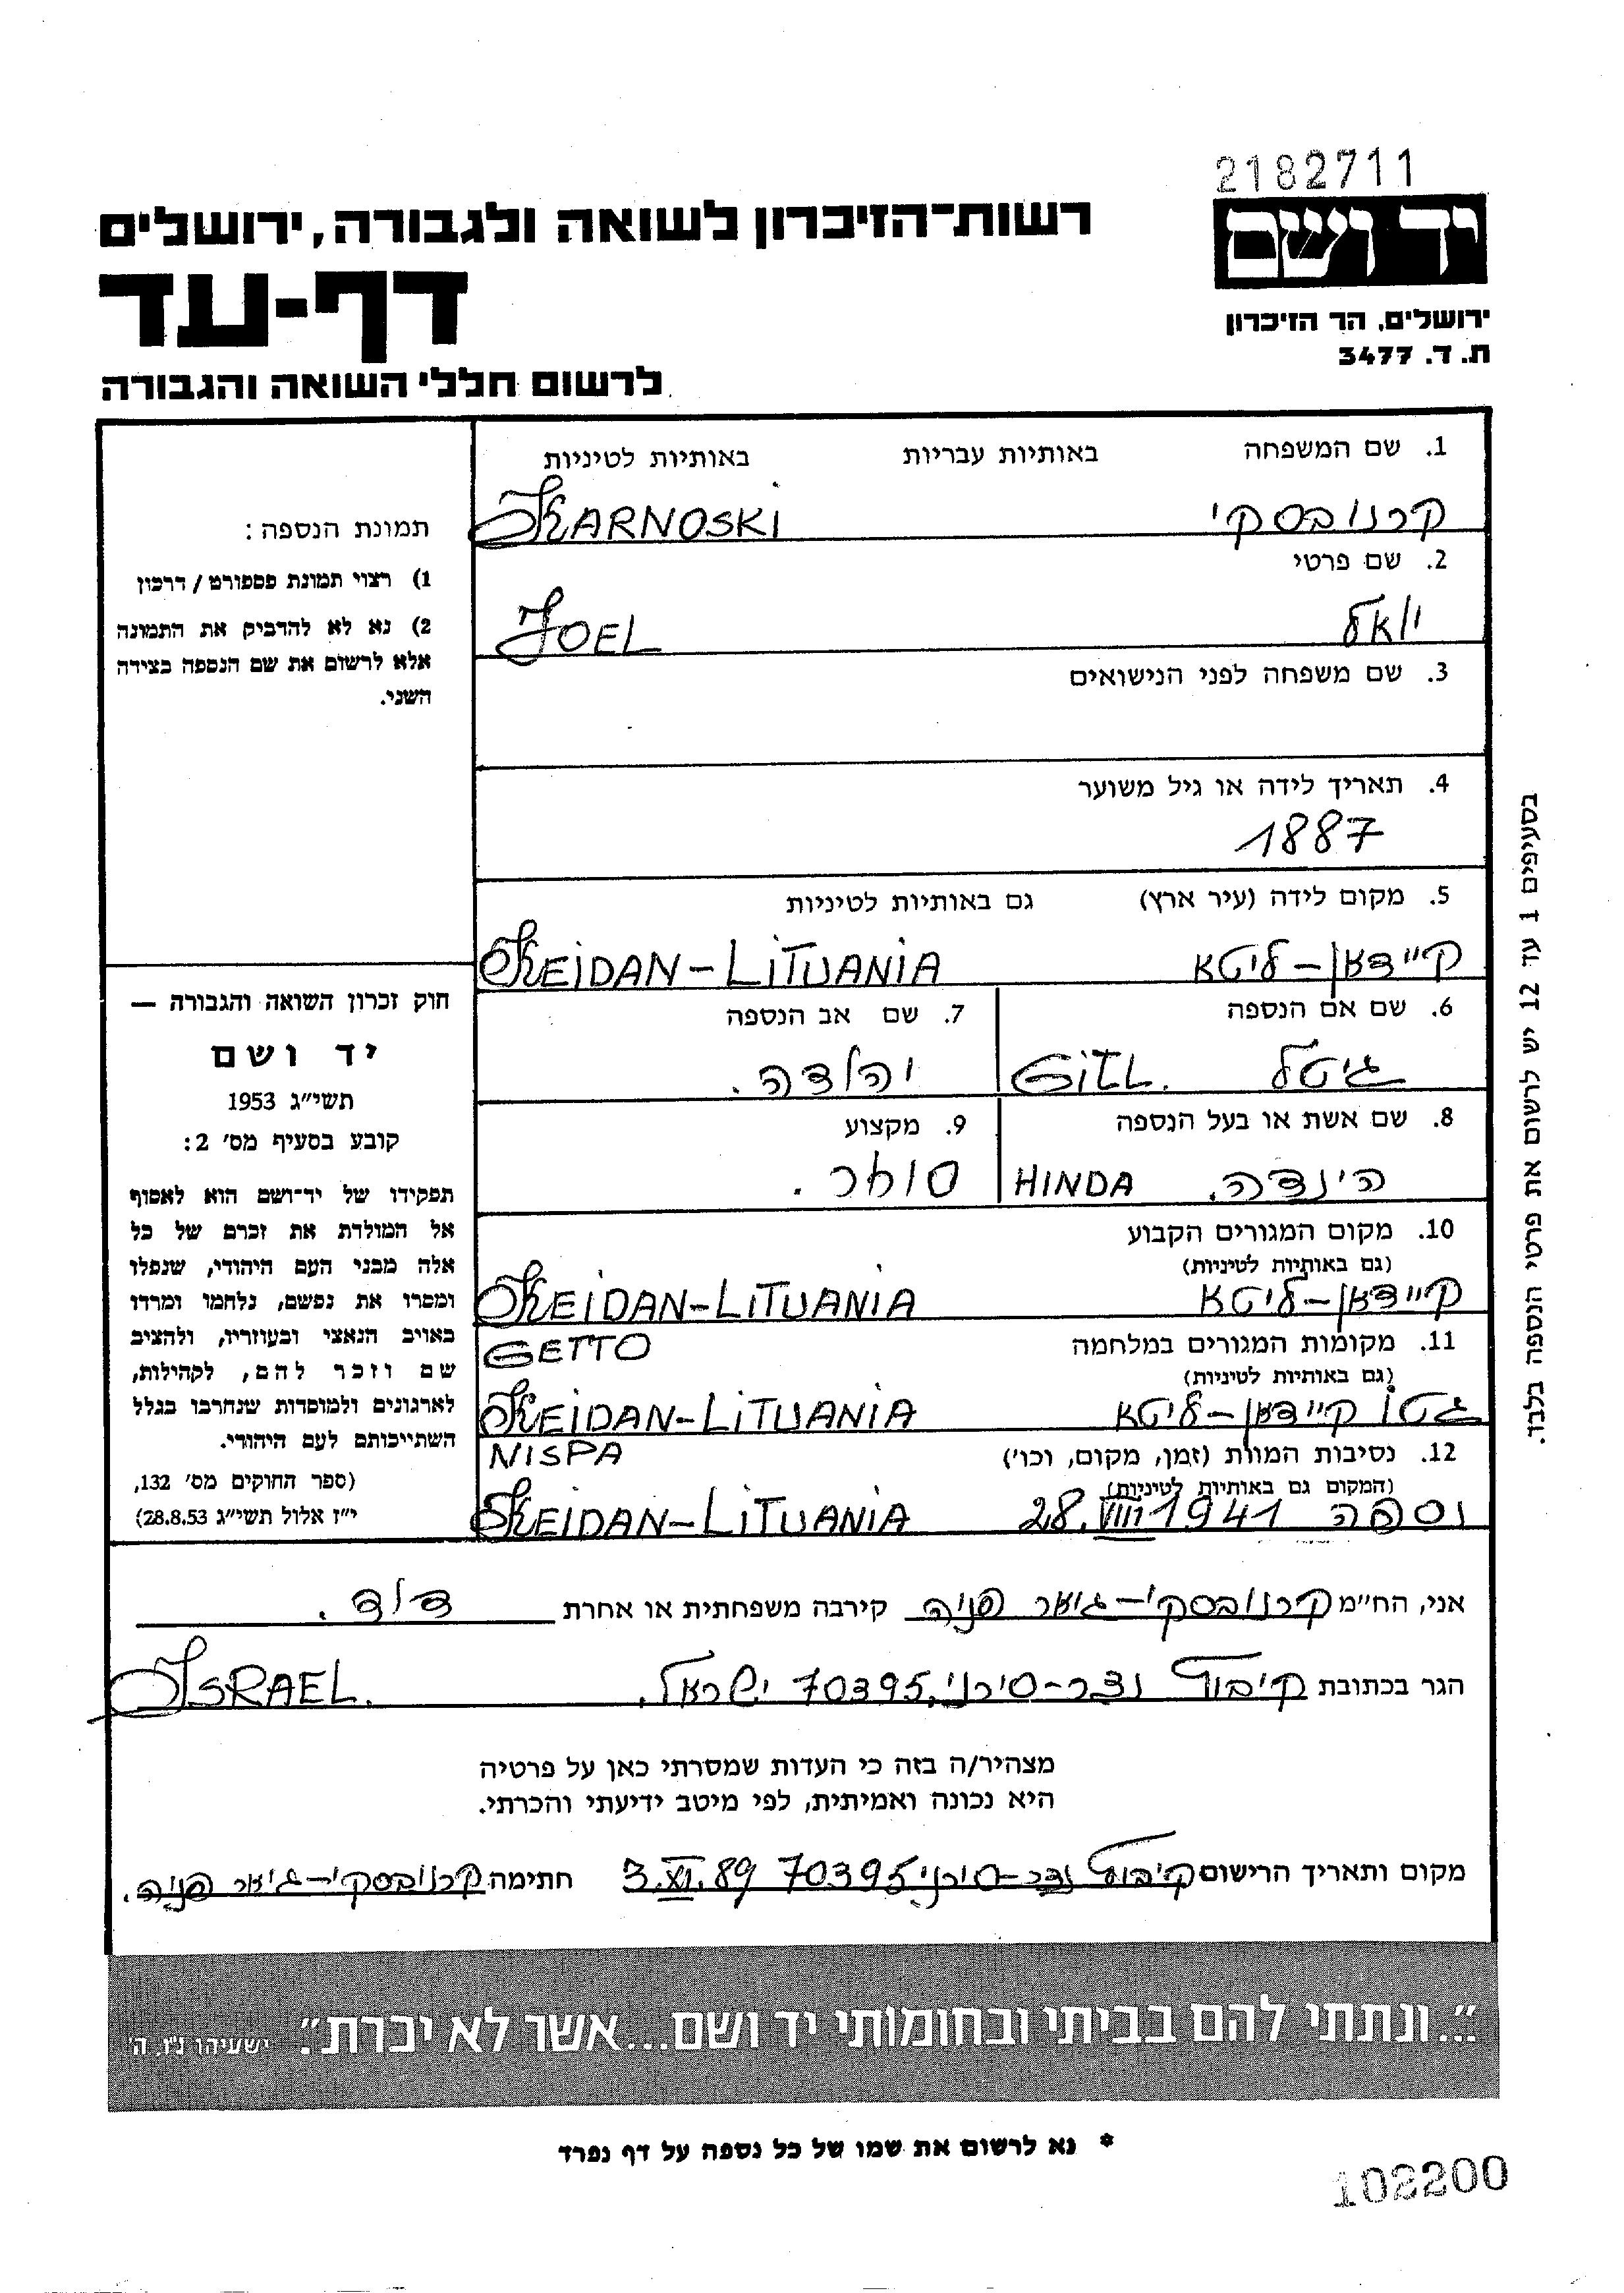 2182711
יד ושם
רשות-הזיכרון לשואה ולגבורה, ירושלים
דף-עד
ירושלים, הר הזיכרון
ת. ד. 3477
לרשום חללי השואה והגבורה
1. שם המשפחה באותיות עבריות באותיות לטיניות
קרנובסקי KARNOSKI
2. שם פרטי
יואל JOEL
3. שם משפחה לפני הנישואים
4. תאריך לידה או גיל משוער
1887
5. מקום לידה (עיר ארץ) גם באותיות לטיניות
קיידאן-ליטא KEIDAN-LITUANIA
6. שם אם הנספה 7. שם אב הנספה
גיטל GITL. יהודה.
8. שם אשת או בעל הנספה 9. מקצוע
הינדה. HINDA סוחר.
10. מקום המגורים הקבוע
(גם באותיות לטיניות)
קיידאן-ליטא KEIDAN-LITUANIA
11. מקומות המגורים במלחמה GETTO
(גם באותיות לטיניות)
גטו קיידאן-ליטא KEIDAN-LITUANIA
12. נסיבות המוות (זמן, מקום, וכו') NISPA
(המקום גם באותיות לטיניות)
נספה 28.VIII 1941 KEIDAN-LITUANIA
תמונת הנספה:
1) רצוי תמונת פספורט / דרכון
2) נא לא להדביק את התמונה
אלא לרשום את שם הנספה בצידה
השני.
חוק זכרון השואה והגבורה —
יד ושם
תשי"ג 1953
קובע בסעיף מס' 2:
תפקידו של יד-ושם הוא לאסוף
אל המולדת את זכרם של כל
אלה מבני העם היהודי, שנפלו
ומסרו את נפשם, נלחמו ומרדו
באויב הנאצי ובעוזריו, ולהציב
שם וזכר להם, לקהילות,
לארגונים ולמוסדות שנחרבו בגלל
השתייכותם לעם היהודי.
(ספר החוקים מס' 132,
י"ז אלול תשי"ג 28.8.53)
בסעיפים 1 עד 12 יש לרשום את פרטי הנספה בלבד.
אני, הח"מ קרנובסקי-גיער פניה קירבה משפחתית או אחרת דוד.
הגר בכתובת קיבוץ נצר-סירני. 70395 ישראל. ISRAEL.
מצהיר/ה בזה כי העדות שמסרתי כאן על פרטיה
היא נכונה ואמיתית, לפי מיטב ידיעתי והכרתי.
מקום ותאריך הרישום קיבוץ נצר-סירני 70395 3.XI.89 חתימה קרנובסקי-גיער פניה.
"...ונתתי להם בביתי ובחומותי יד ושם...אשר לא יכרת". ישעיהו נ"ו, ה'
* נא לרשום את שמו של כל נספה על דף נפרד
102200